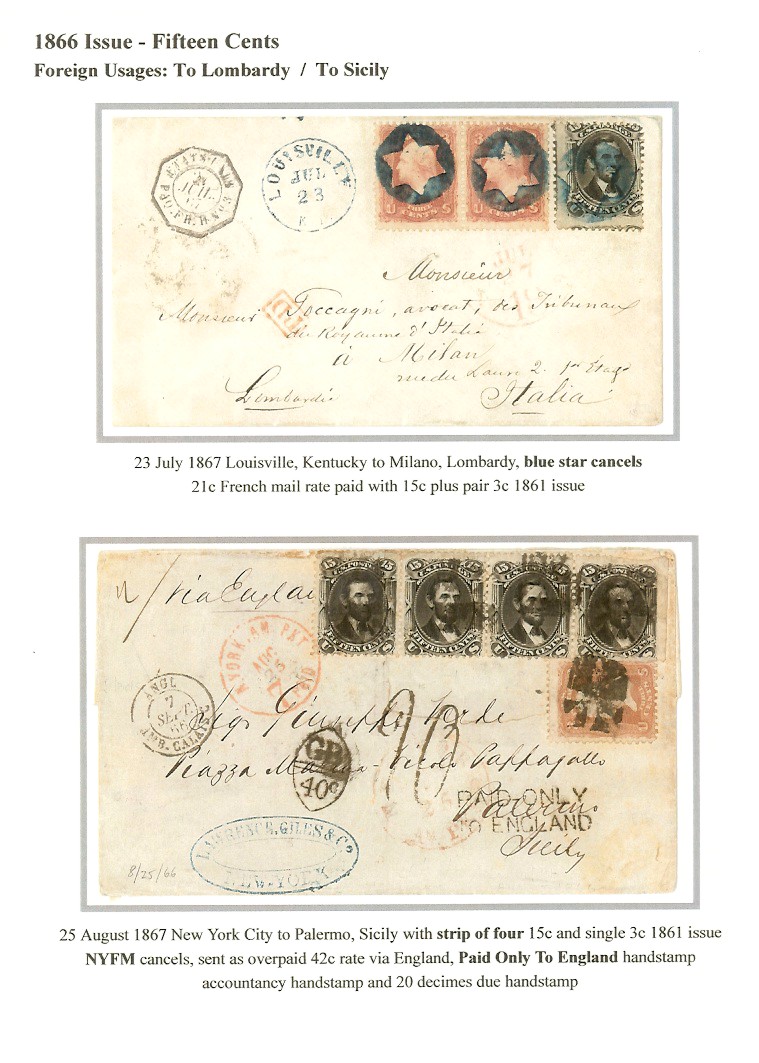 1866 Issue - Fifteen Cents
Foreign Usages: To Lombardy / To Sicily
ETATS-UNIS
LOUISVILLE
JUL
23
THREE CENTS
FIFTEEN CENTS
Monsieur
PD
Monsieur Toccagni, avocat, des Tribunaux
du Royaume d'Italie
à Milan
rue du Lauro 2. 1er Étage
Lombardie
Italia
23 July 1867 Louisville, Kentucky to Milano, Lombardy, blue star cancels
21c French mail rate paid with 15c plus pair 3c 1861 issue
15 U.S. POSTAGE 15
FIFTEEN CENTS
via England
N. YORK AM. PKT.
AUG
25
PAID
ANGL
7
SEPT
66
AMB. CALAIS
Sigr Giuseppe Verde
Piazza Marina - Vicolo Pappagallo
GB
40c
PAID ONLY
TO ENGLAND
Palermo
Sicily
LAWRENCE, GILES & Co
NEW-YORK
8/25/66
25 August 1867 New York City to Palermo, Sicily with strip of four 15c and single 3c 1861 issue
NYFM cancels, sent as overpaid 42c rate via England, Paid Only To England handstamp
accountancy handstamp and 20 decimes due handstamp